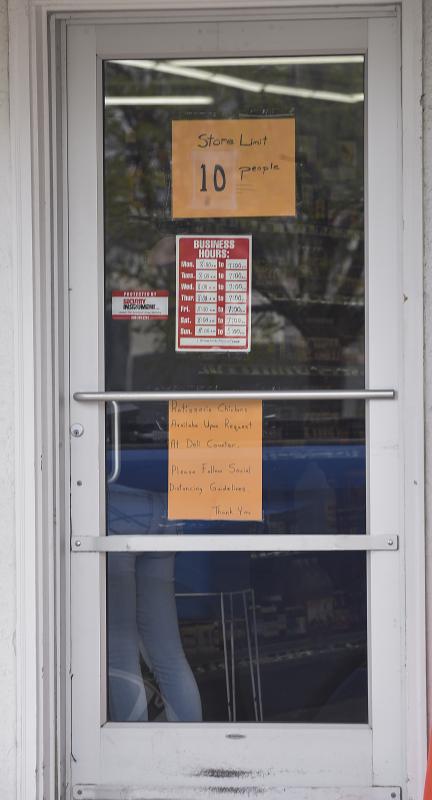 Store Limit
10 people
BUSINESS
HOURS:
Mon. 8:00 to 7:00
Tues. 8:00 to 7:00
Wed. 8:00 to 7:00
Thur. 8:00 to 7:00
Fri. 8:00 to 7:00
Sat. 8:00 to 7:00
Sun. 8:00 to 5:00
PROTECTED BY
SECURITY
INSTRUMENT
Rotisserie Chickens
Availabe Upon Request
At Deli Counter.
Please Follow Social
Distancing Guidelines
Thank You